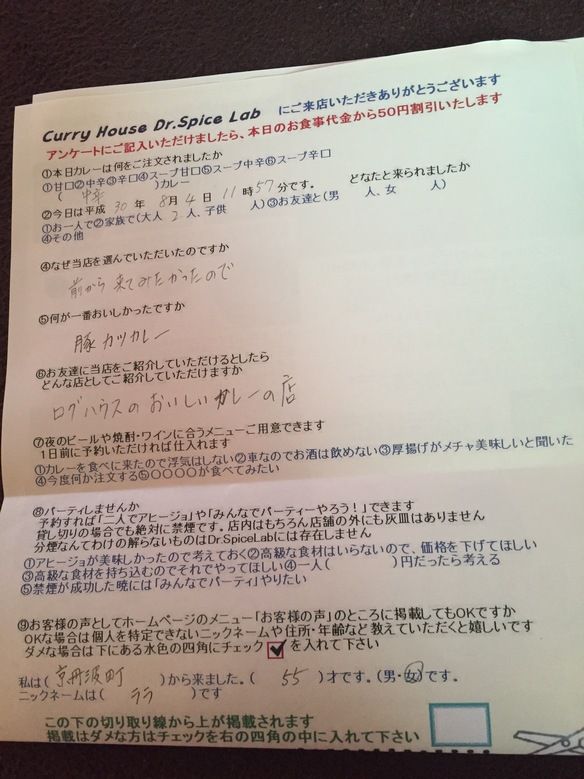 Curry House Dr.Spice Lab にご来店いただきありがとうございます
アンケートにご記入いただけましたら、本日のお食事代金から50円割引いたします
①本日カレーは何をご注文されましたか
①甘口②中辛③辛口④スープ甘口⑤スープ中辛⑥スープ辛口
( 中辛 )カレー
②今日は平成 30 年 8月 4 日 11 時57分です。 どなたと来られましたか
①お一人で②家族で(大人 2 人、子供 人)③お友達と(男 人、女 人)
④その他
④なぜ当店を選んでいただいたのですか
前から来てみたかったので
⑤何が一番おいしかったですか
豚カツカレー
⑥お友達に当店をご紹介していただけるとしたら
どんな店としてご紹介していただけますか
ログハウスのおいしいカレーの店
⑦夜のビールや焼酎・ワインに合うメニューご用意できます
1日前に予約いただければ仕入れます
①カレーを食べに来たので浮気はしない②車なのでお酒は飲めない③厚揚げがメチャ美味しいと聞いた
④今度何か注文する⑤〇〇〇〇が食べてみたい
⑧パーティしませんか
予約すれば「二人でアヒージョ」や「みんなでパーティーやろう!」できます
貸し切りの場合でも絶対に禁煙です。店内はもちろん店舗の外にも灰皿はありません
分煙なんてわけの解らないものはDr.SpiceLabには存在しません
①アヒージョが美味しかったので考えておく②高級な食材はいらないので、価格を下げてほしい
③高級な食材を持ち込むのでそれでやってほしい④一人( )円だったら考える
⑤禁煙が成功した暁には「みんなでパティ」やりたい
⑨お客様の声としてホームページのメニュー「お客様の声」のところに掲載してもOKですか
OKな場合は個人を特定できないニックネームや住所・年齢など教えていただくと嬉しいです
ダメな場合は下にある水色の四角にチェック を入れて下さい
私は( 京丹波町 )から来ました。( 55 )才です。(男・女)です。
ニックネームは( ララ )です
この下の切り取り線から上が掲載されます
掲載はダメな方はチェックを右の四角の中に入れて下さい